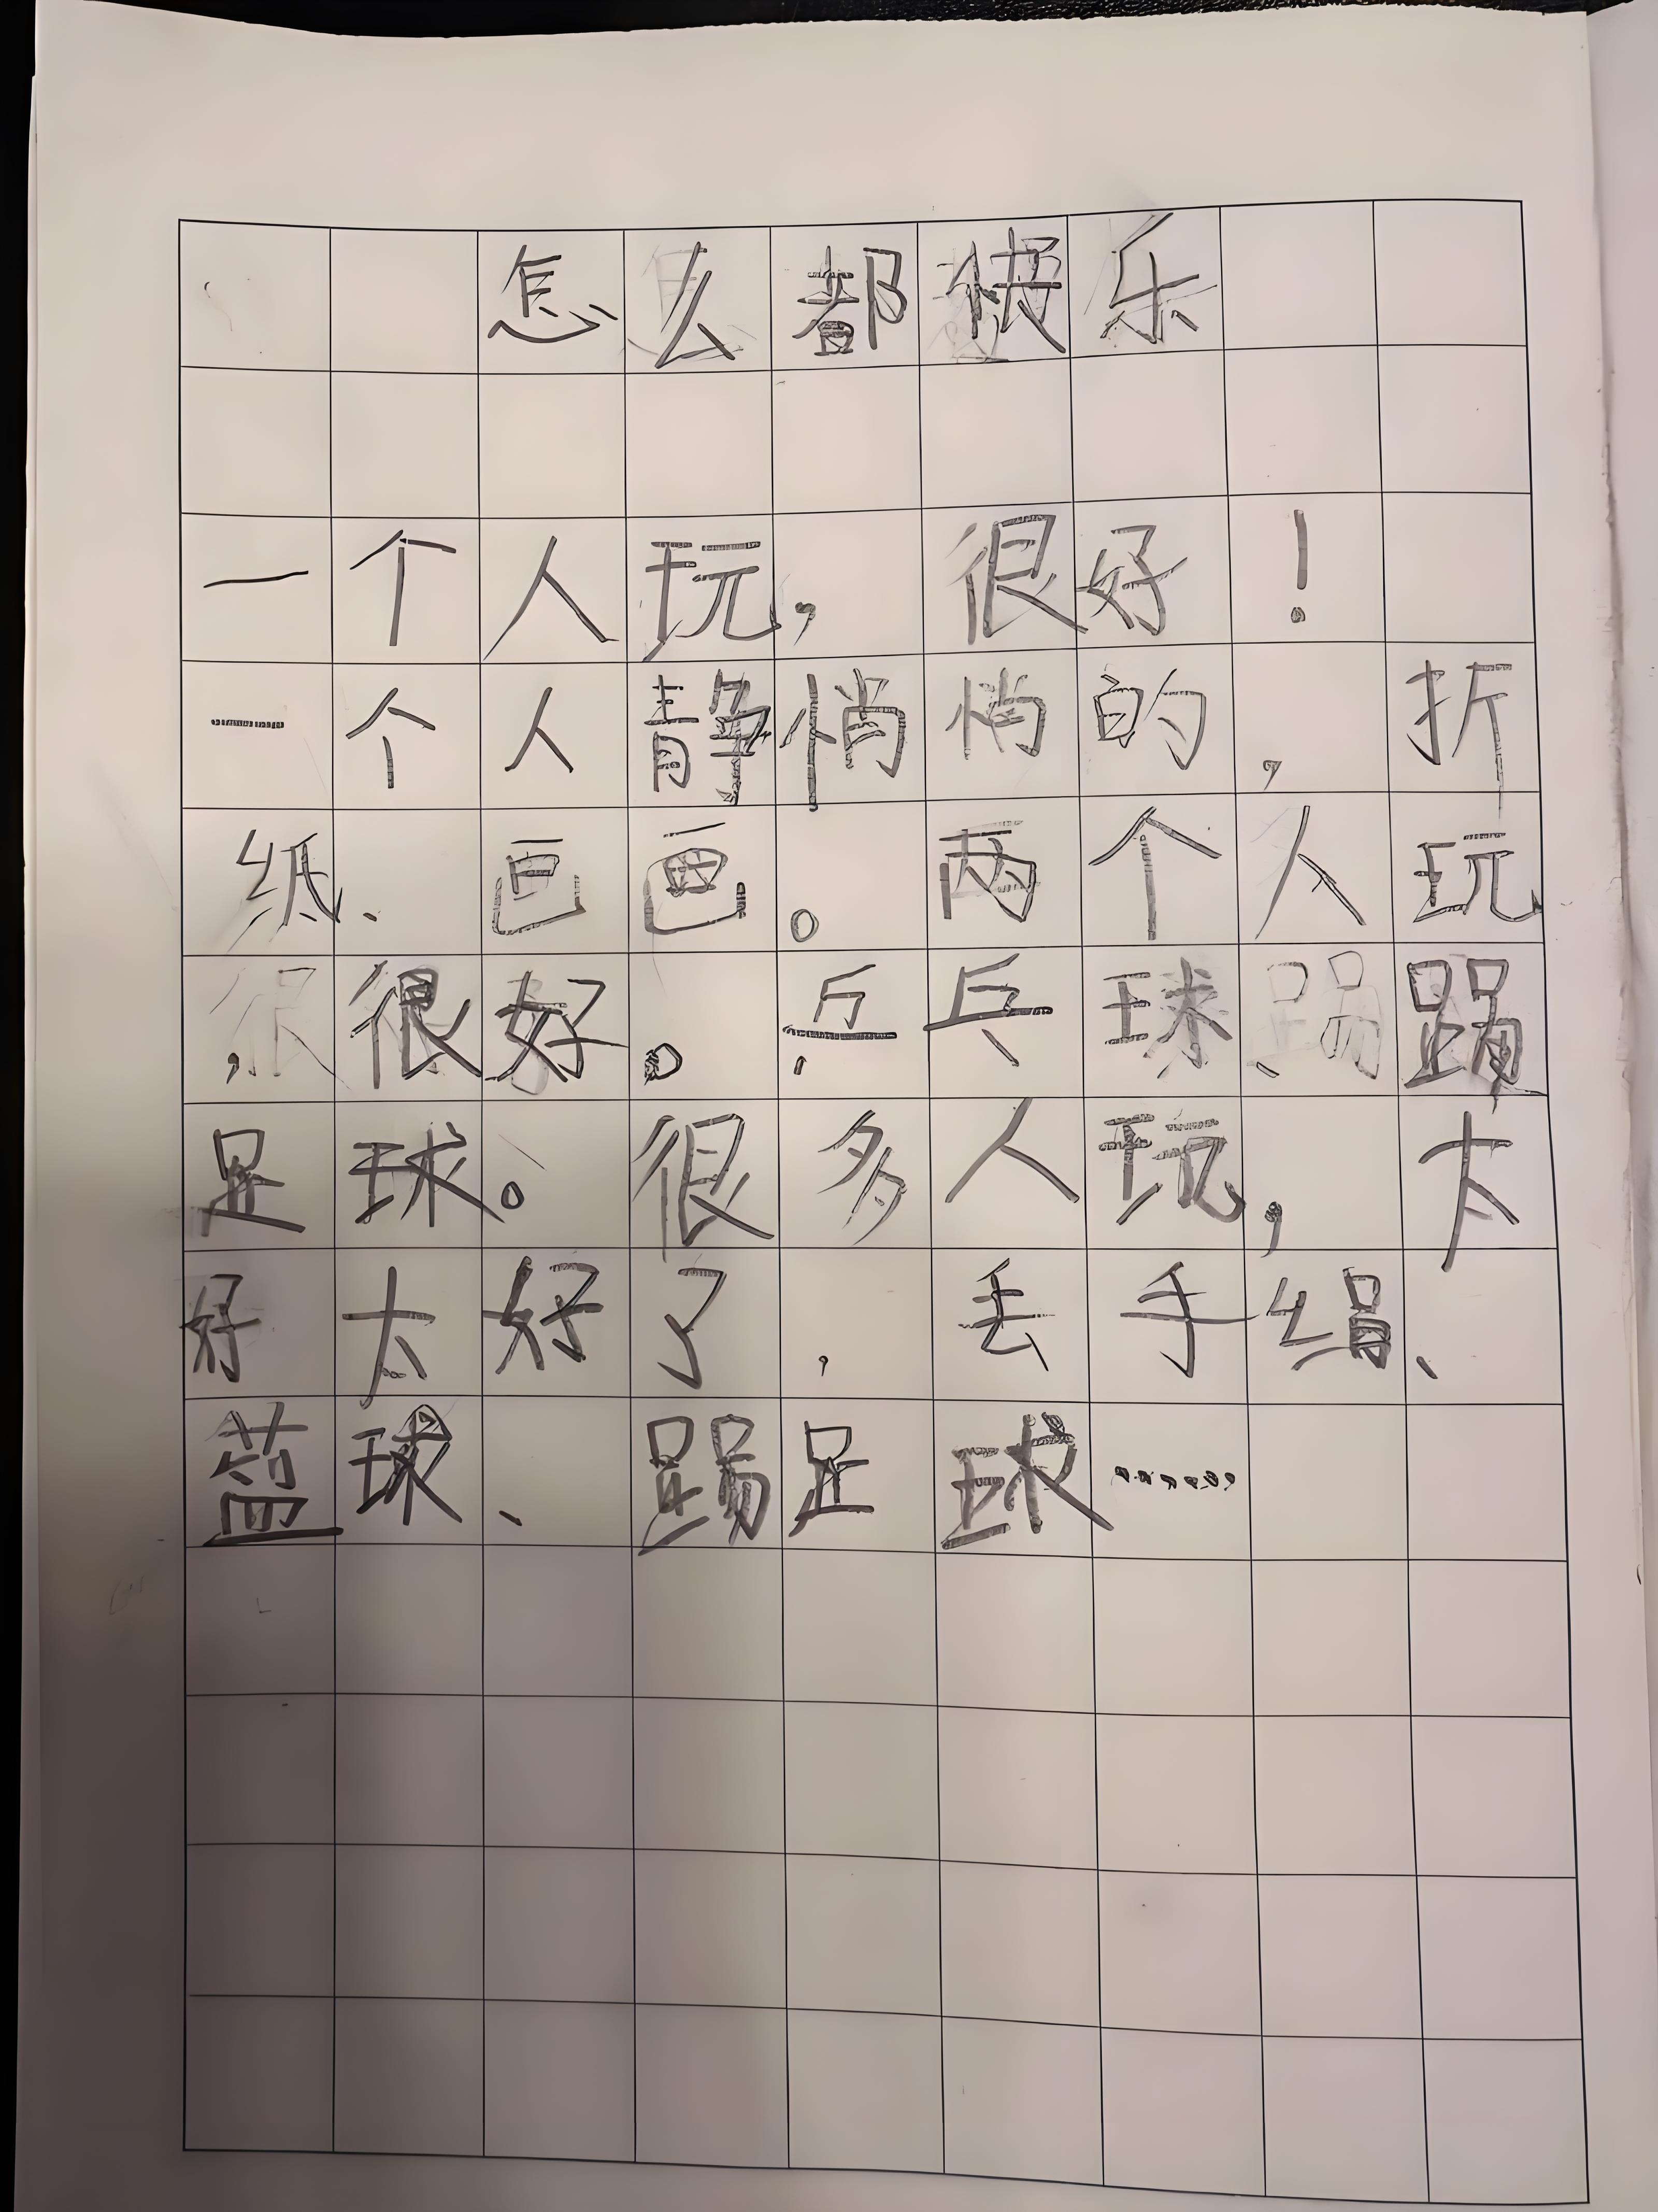 怎么都快乐
一个人玩，很好！
一个人静悄悄的，折
纸、画画。两个人玩
，很好。乒乓球、踢
足球。很多人玩，太
好太好了，丢手绢、
篮球、踢足球……